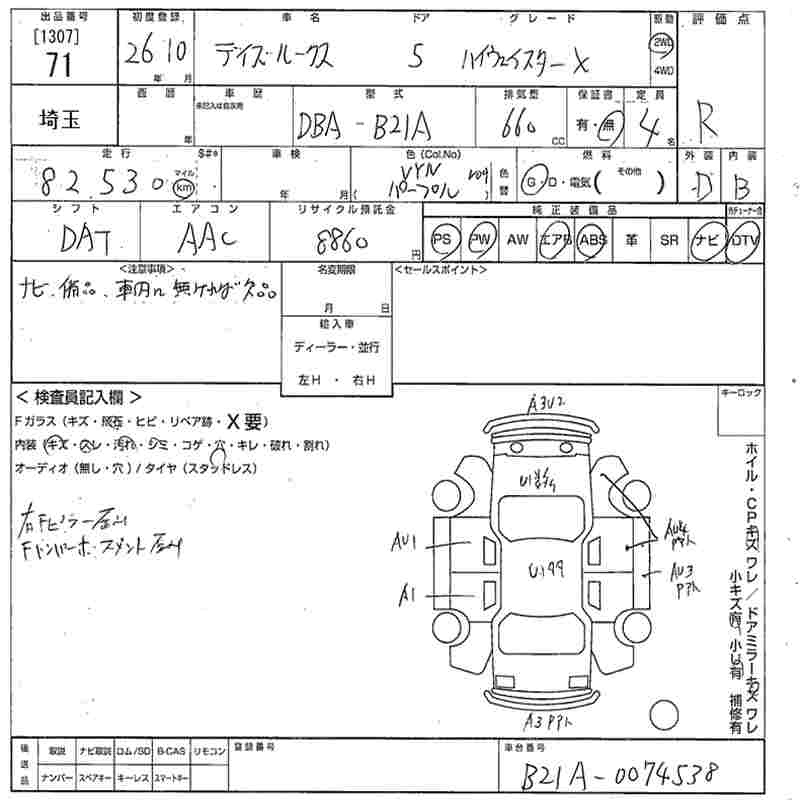 出品番号 初度登録 車名 ドア グレード 駆動 評価点
[1307]
71 26 10 デイズルークス 5 ハイウェイスターX 2WD
年 月 4WD
埼玉 西暦 車歴 型式 排気量 保証書 定員 R
未記入は自家用
DBA-B21A 660 CC 有・無 4 名
走行 S#* 車検 色(Col.No) 燃料 外装 内装
82,530 マイル km 年 月 ( VYN パープル ) 色替 G・D・電気( その他 ) D B
シフト エアコン リサイクル預託金 純正装備品
DAT AAC 8860 円 PS PW AW エアB ABS 革 SR ナビ DTV
<注意事項> 名変期限 <セールスポイント>
ナビ、備品、車内に無ければ欠品
月 日
輸入車
ディーラー・並行
左H ・ 右H
<検査員記入欄> キーロック
Fガラス(キズ・飛石・ヒビ・リペア跡・X要)
内装(キズ・スレ・汚れ・シミ・コゲ・穴・キレ・破れ・割れ)
オーディオ(無し・穴)/タイヤ(スタッドレス)
右Fピラー歪み
A3U2
AU1
A1
U199
AU3
A3
ホイル・CPキズ ワレ/ドアミラーキズ ワレ
小キズ有 小U有 補修有
後送品 取説 ナビ取説 ロム/SD B-CAS リモコン 登録番号 車台番号
ナンバー スペアキー キーレス スマートキー
B21A-0074538